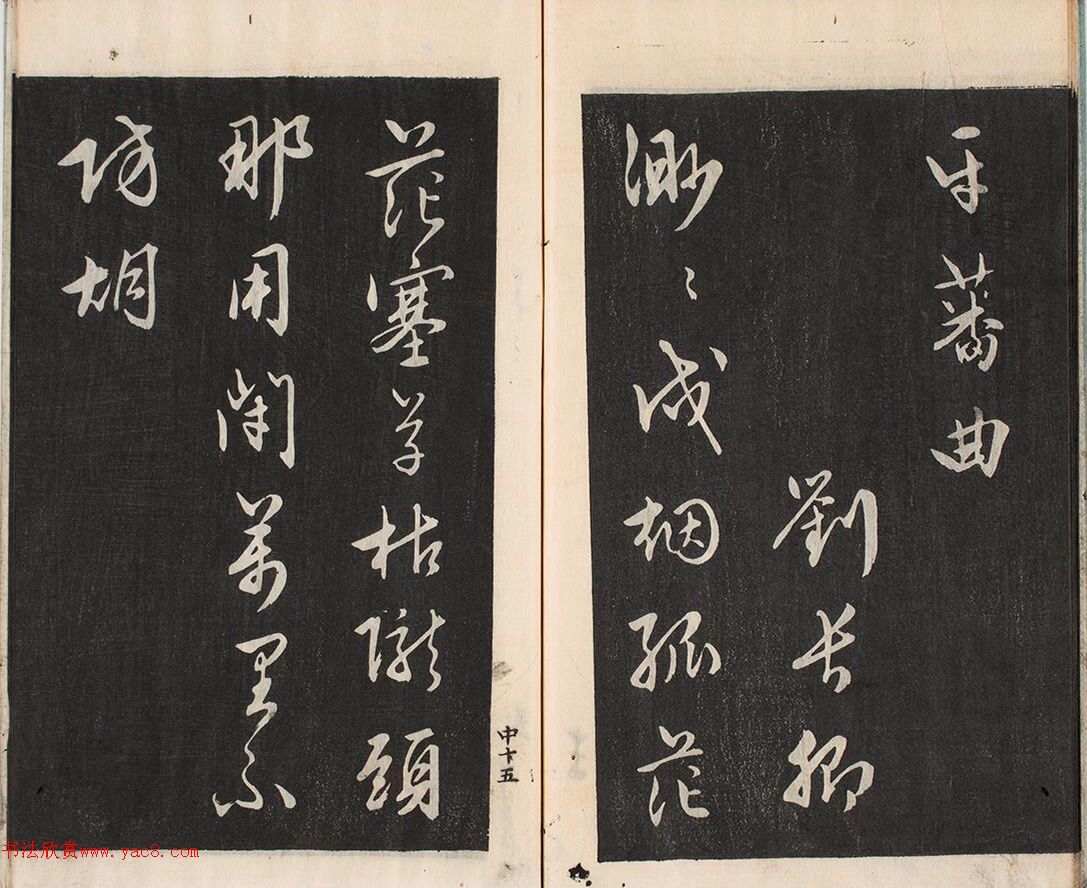 平蕃曲
劉長卿
渺〻戍烟孤茫
茫塞草枯隴頭
那用閉萬里不
防胡
中十五
书法欣赏www.yac8.com